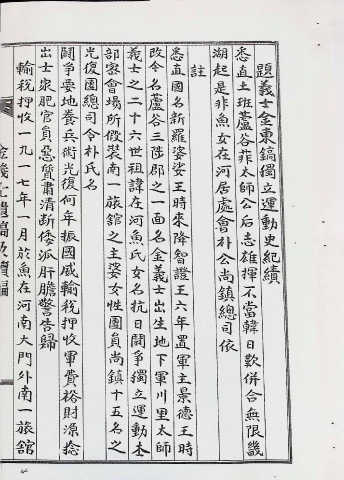 題義士金東鎬獨立運動史紀績
悉直土班蘆谷菲太師公后志雄揮不當韓日歎併合無限幾
湖起是非魚女在河居處會朴公尚鎮總司依
註
悉直國名新羅婆娑王時來降智證王六年置軍主景德王時
改今名蘆谷三陟郡之一面名金義士出生地下軍川里太師
義士之二十六世祖諱在河魚氏女名抗日鬪爭獨立運動本
部密會場所假裝南一旅舘之主婆女性團員尚鎮十五名之
光復團總司令朴氏名
鬪爭要地養兵術光復何年振國威輸稅押收軍費裕財源捻
出士衆肥官員惡質肅清斷倭派肝膽警告歸
輸稅押收一九一七年一月於魚在河南大門外南一旅舘